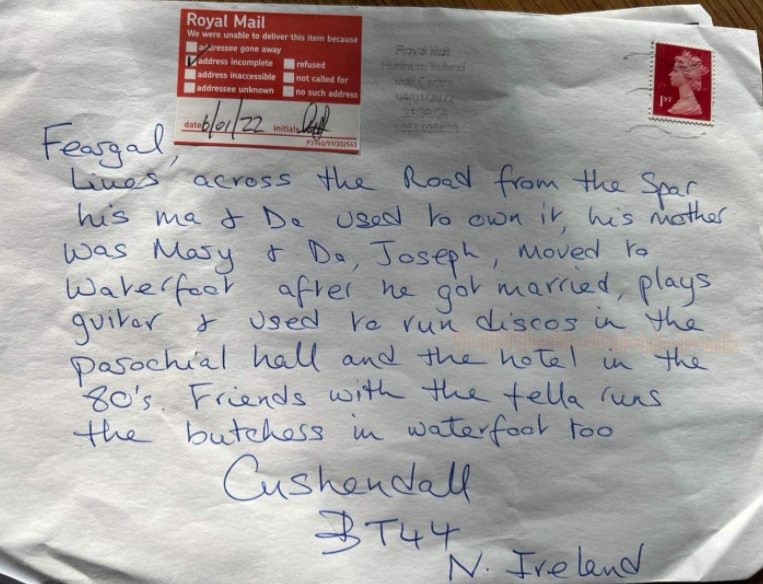 Royal Mail
We were unable to deliver this item because
addressee gone away
address incomplete
refused
address inaccessible
not called for
addressee unknown
no such address
date 6/01/22 initials
P2940/97/302543
1ST
Feargal,
Lives across the Road from the Spar
his ma & Da used to own it, his mother
was Mary & Da, Joseph, moved to
Waterfoot after he got married, plays
guitar & used to run discos in the
parochial hall and the hotel in the
80's. Friends with the fella runs
the butchers in waterfoot too
Cushendall
BT44
N. Ireland